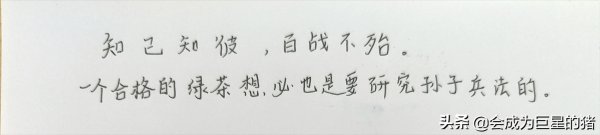 知己知彼，百战不殆。
一个合格的绿茶想必也是要研究孙子兵法的。
头条 @会成为巨星的猪